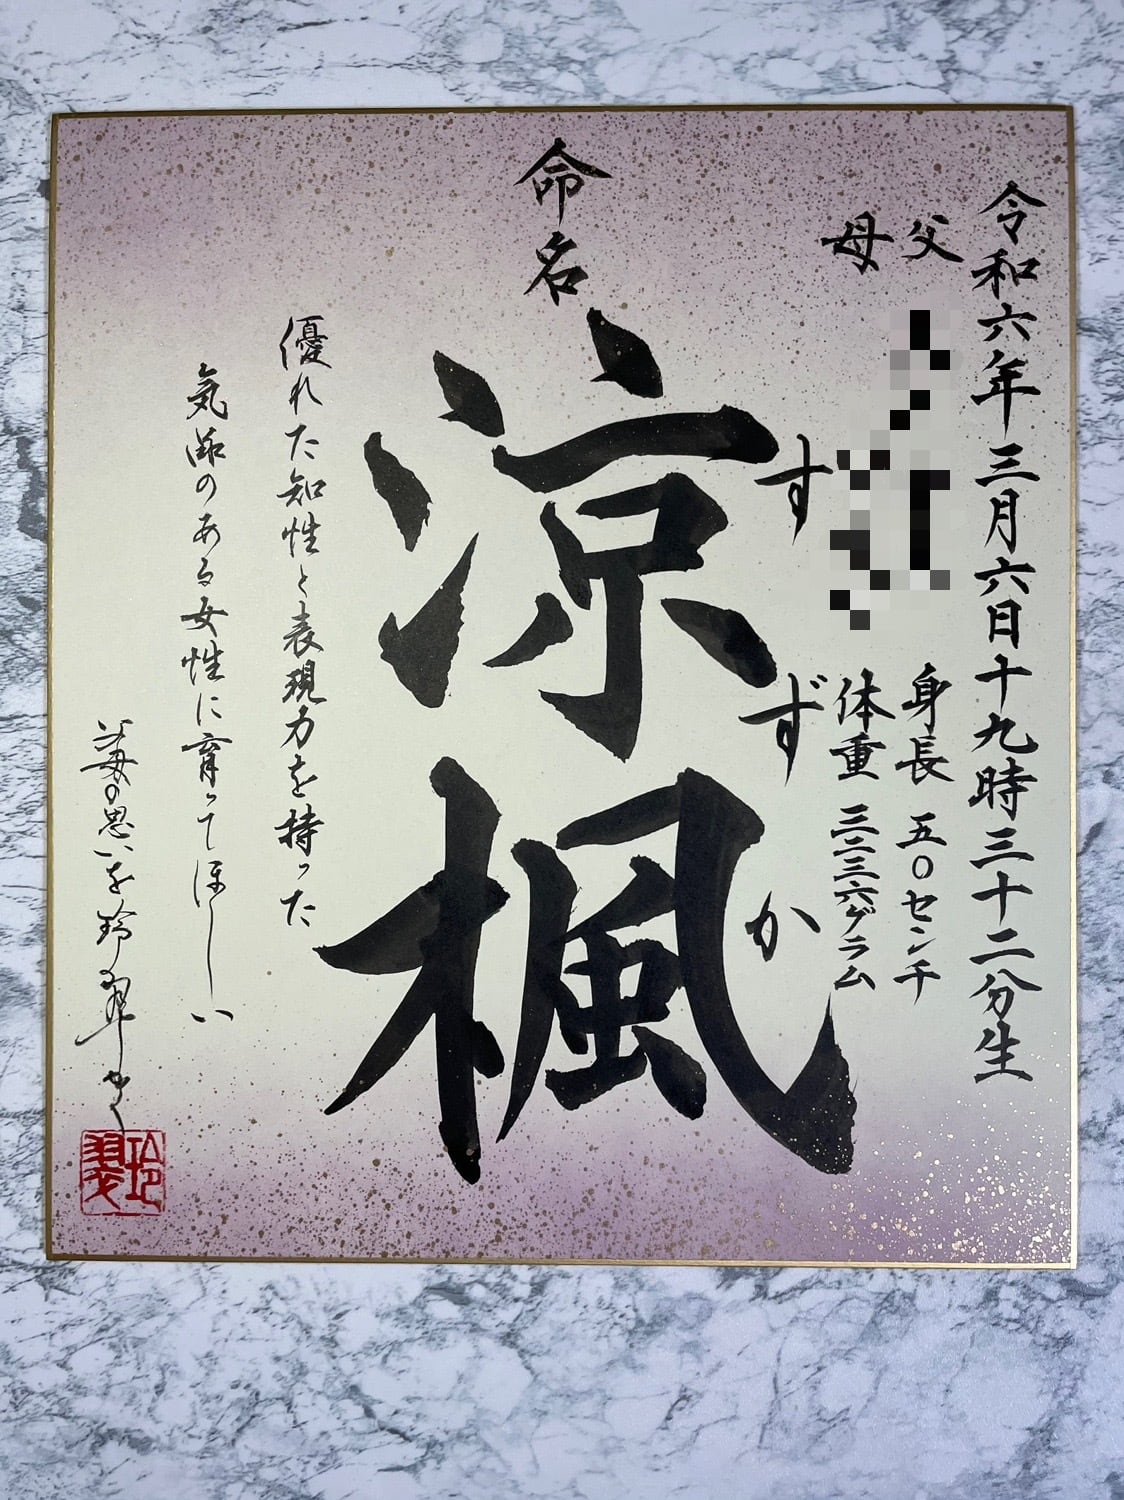 令和六年三月六日十九時三十二分生
父
母
身長 五〇センチ
体重 三三三六グラム
命名
涼楓
すずか
優れた知性と表現力を持った
気品のある女性に育ってほしい
父母の思いを玲翠かく
玲翠